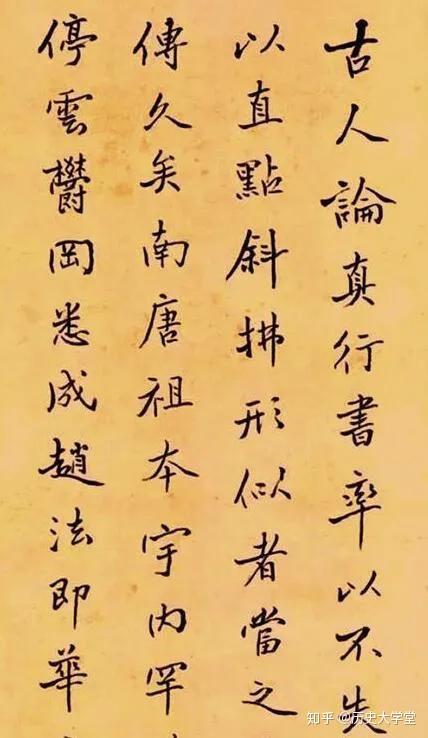 古人論真行書率以不失
以直點斜拂形似者當之
傳久矣南唐祖本宇內罕
停雲欝岡悉成趙法即華
知乎 @历史大学堂